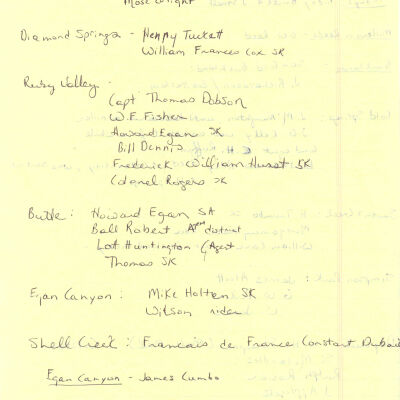 Mose Wright
Diamond Springs - Henry Tuckett
William Frances Cox SK
Ruby Valley -
Capt Thomas Dobson
W.F. Fisher
Howard Egan SK
Bill Dennis
Frederick William Hurst SK
Colonel Rogers SK
Butte: Howard Egan SA
Ball Robert district
Lot Huntington Agent
Thomas SK
Egan Canyon: Mike Holten SK
Wilson rider
Shell Creek: Francais de France Constant Dubail
Egan Canyon - James Cumbo